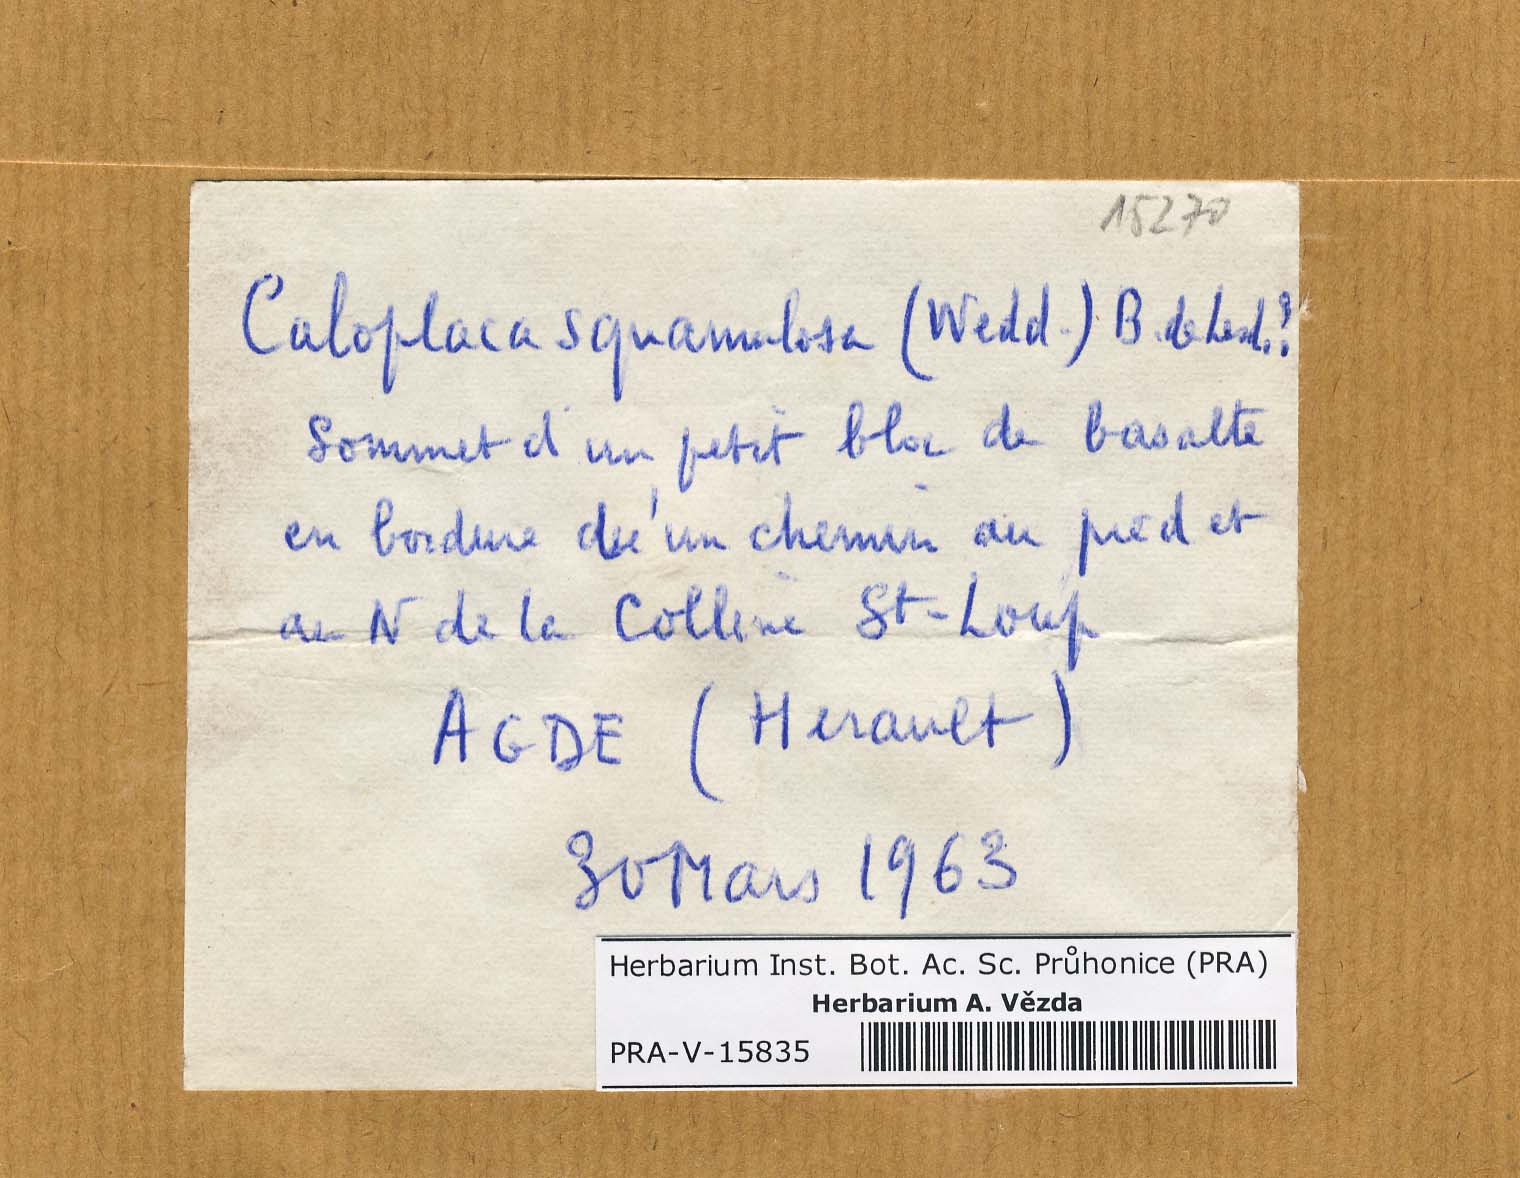 15270
Caloplaca squamulosa (Wedd.) B. de Lesd.?
Sommet d'un petit bloc de basalte
en bordure d'un chemin au pied et
au N de la Colline St-Loup
AGDE (Herault)
30 Mars 1963
Herbarium Inst. Bot. Ac. Sc. Průhonice (PRA)
Herbarium A. Vězda
PRA-V-15835